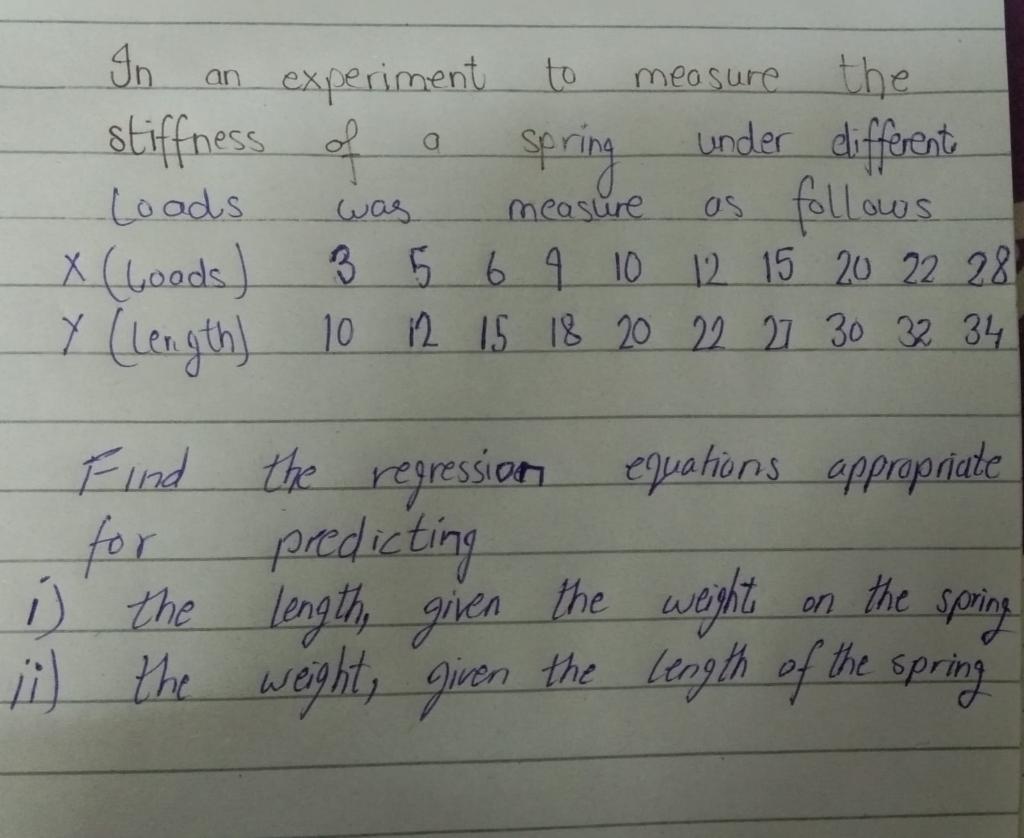 In an experiment to measure the
stiffness of a spring under different
Loads was measure as follows
X (Loads) 3 5 6 9 10 12 15 20 22 28
Y (length) 10 12 15 18 20 22 27 30 32 34
Find the regression equations appropriate
for predicting
i) the length, given the weight on the spring
ii) the weight, given the length of the spring